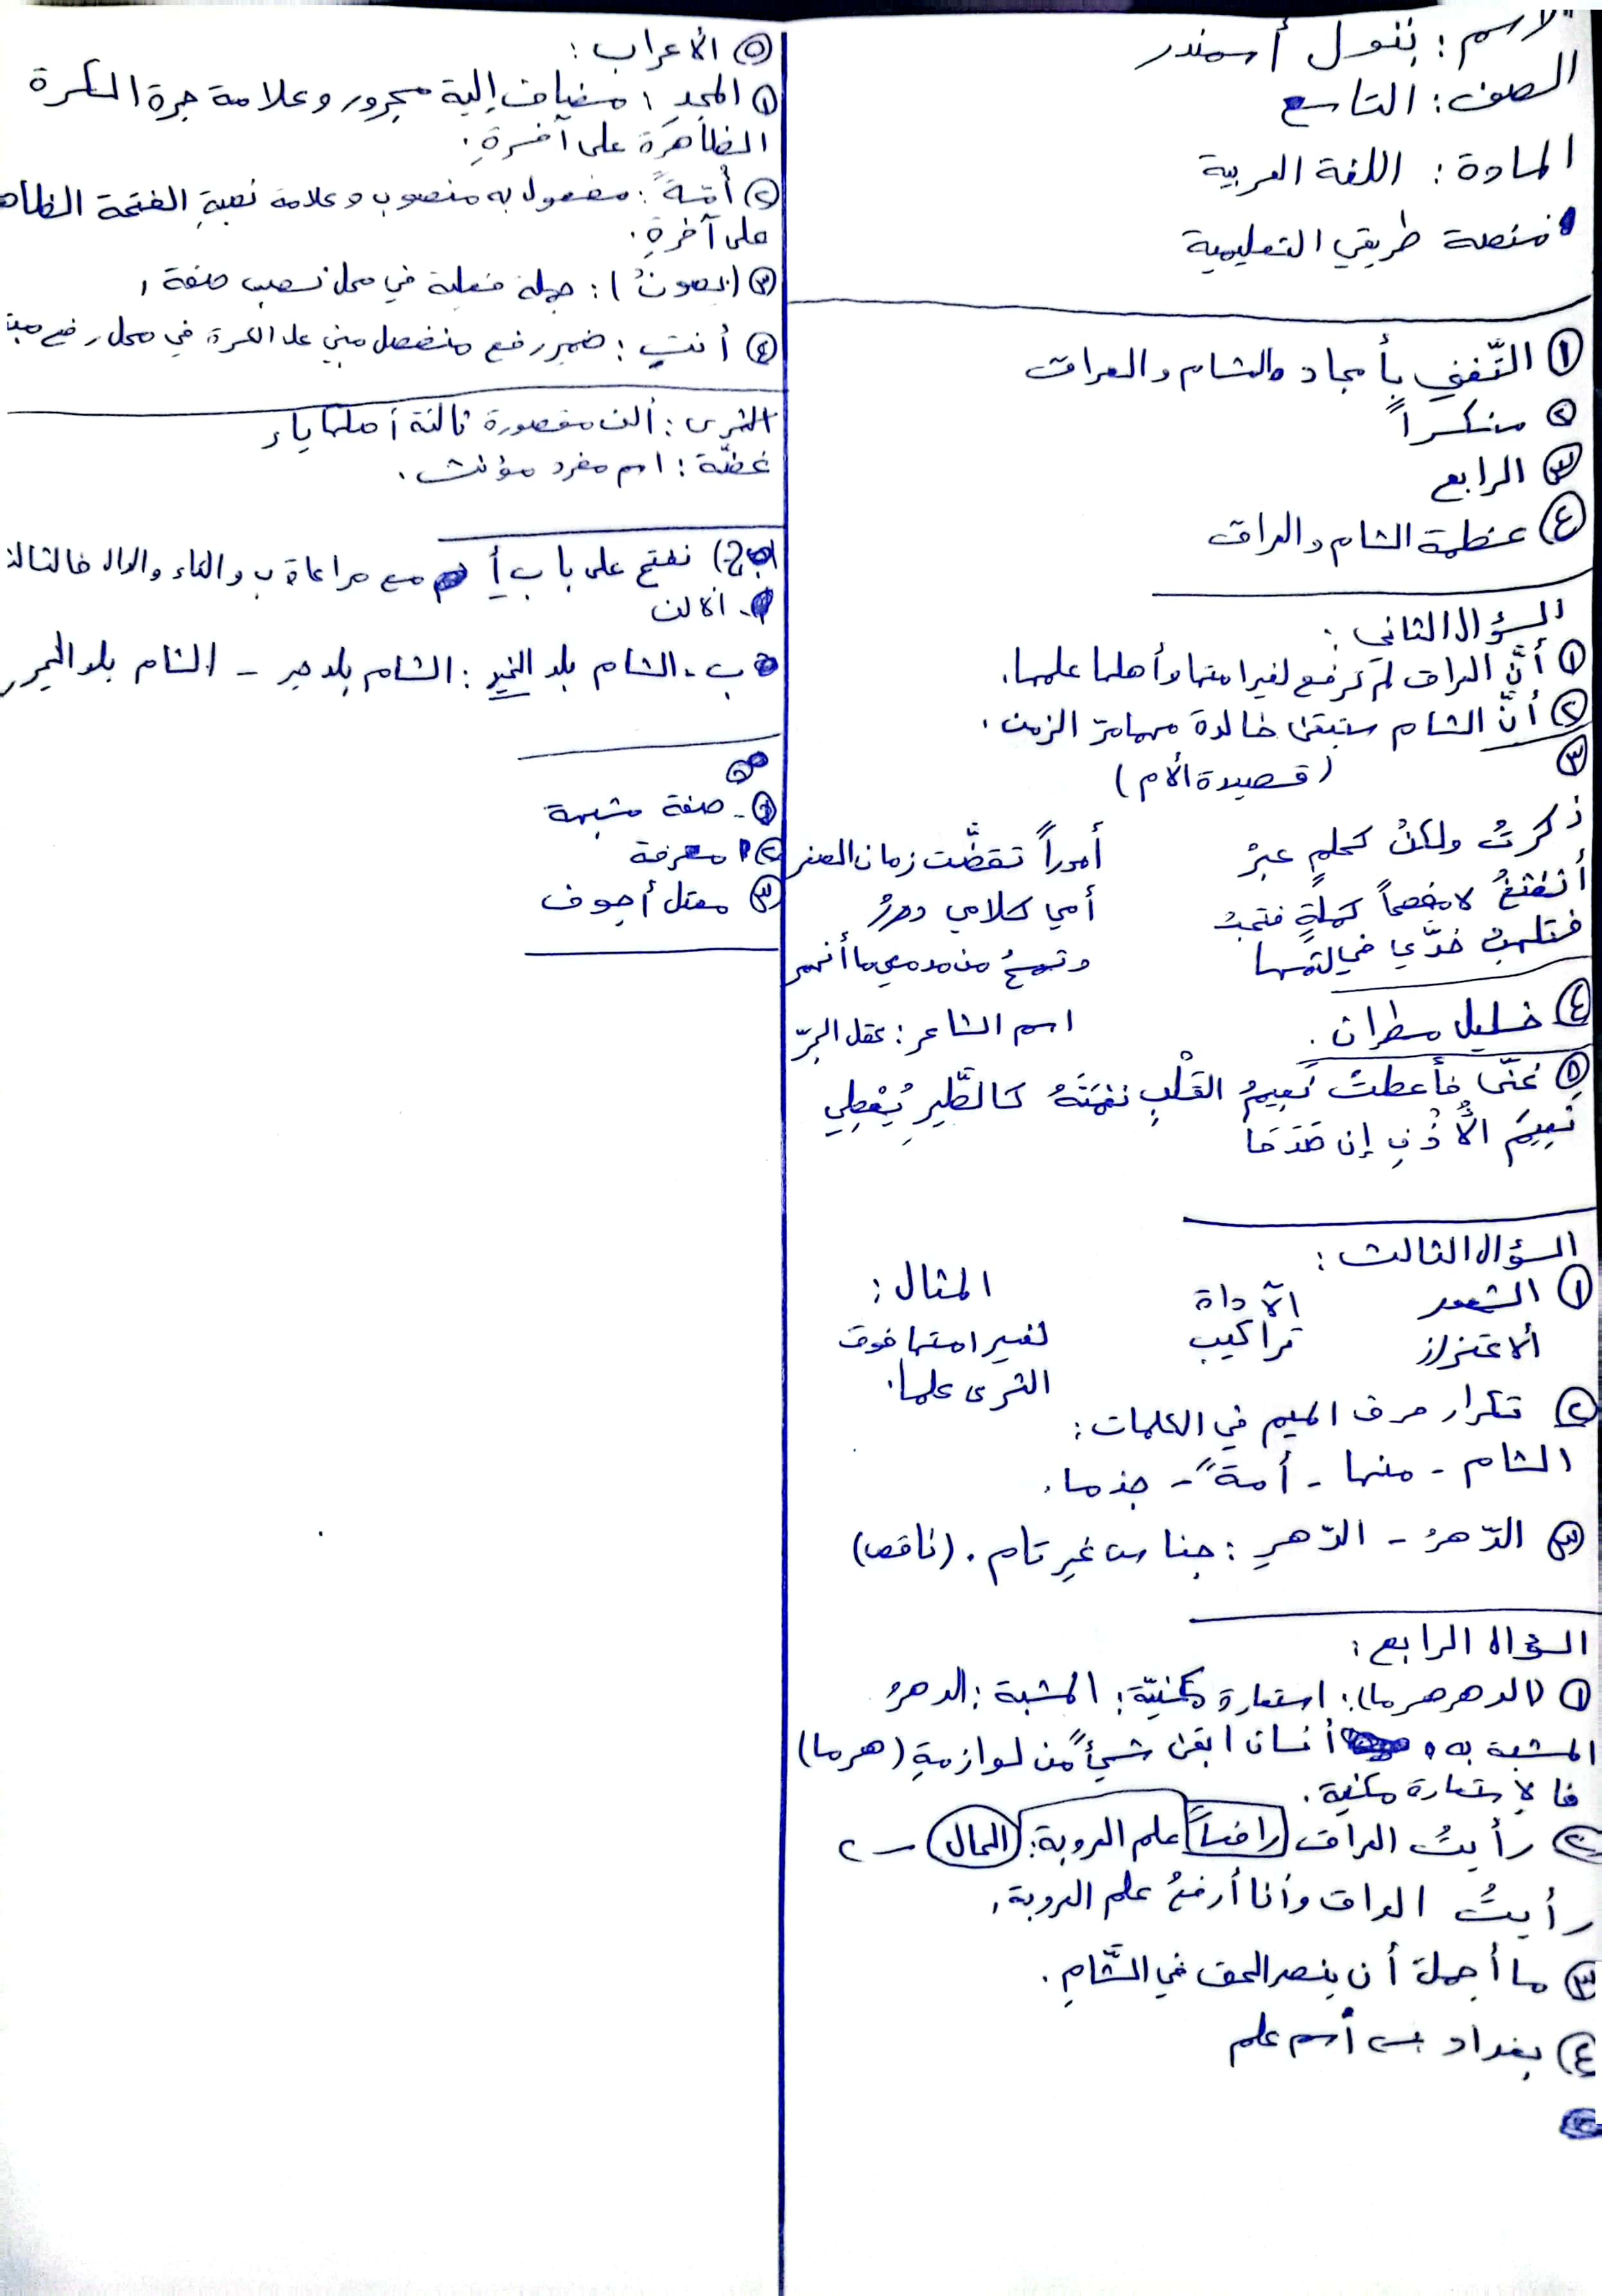 الاسم : بتول أسمندر
الصف : التاسع
المادة : اللغة العربية
منصة طريقي التعليمية
① التّغني بأمجاد الشام والعراق
② منكسراً
③ الرابع
④ عظمة الشام والعراق
السؤال الثاني :
① أنَّ العراق لم ترفع لغير امتها وأهلها علمها.
② أنَّ الشام ستبقى خالدة مهما مرّ الزمن .
③ (قصيدة الأم)
ذكرتُ ولكنْ كحلمٍ عبرْ أموراً تقضَّت زمان الصغر
أمي كلامي دررْ
فتلهبُ خدّي في لثمها وتمسحُ من مدمعي ما أنهمر
اسم الشاعر : عقل الجرّ
④ خليل مطران .
⑤ غنّى فأعطتْ نَعِيمُ القَلْبِ نغمَتَهُ كالطَّيرِ يُعْطِي
نَعِيمَ الأُذُنِ إن صَدَحَا
السؤال الثالث :
① الشعور الأداة المثال :
ألاعتزاز تراكيب لغير امتها فوق
الثرى علما.
② تكرار حرف الميم في الكلمات :
الشام - منها - أمةً - جذما.
③ الدّهرُ - الدّهرِ : جناس غير تام . (ناقص)
السؤال الرابع :
① (الدهر هرما): استعارة مكنيّة: المشبة : الدهرُ
المشبة به أنسان ابقى شيئاً من لوازمةِ (هرما)
فالإستعارة مكنية .
② رأيتُ العراق رافعاً علم العروبة: الحال - 2
رأيتُ العراق وأنا أرفعُ علم العروبة.
③ ما أجملَ أن ينصر الحق في الشَّامِ .
④ بغداد اسم علم
⑤ الأعراب :
① المجدِ : مضاف إلية مجرور وعلامة جرة الكسرة
الظاهرة على آخرةِ .
② أمّةً : مفعول به منصوب وعلامة نصبةِ الفتحة الظاه
على آخرةِ .
③ (يصونُ) : جملة فعلية في محل نصب صفة .
④ أنتِ : ضمير رفع منفصل مبني على الكسرة في محل رفع مبت
الثرى : ألف مقصورة ثالثة أصلها ياء
غضّة : اسم مفرد مؤنث .
نفتح على باب أ مع مراعاة ب والفاء والدال فالثالث
الألف
ب - الشام بلد الخير : الشام بلد خير - الشام بلد الخير
① - صفة مشبهة
② معرفة
③ معتل أجوف